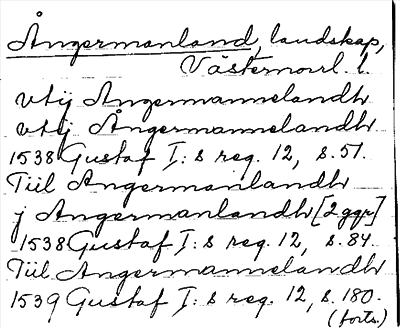 Ångermanland, landskap,
Västernorrl. l.
vtij Angermannelandh
vtej Ångermannelandh
1538 Gustaf I: s reg. 12, s. 51.
Tiil Angermanlandh
j Angermanlandh [2 ggr]
1538 Gustaf I: s reg. 12, s. 84.
Tiil Angermannelandh
1539 Gustaf I: s reg. 12, s. 180.
(forts.)